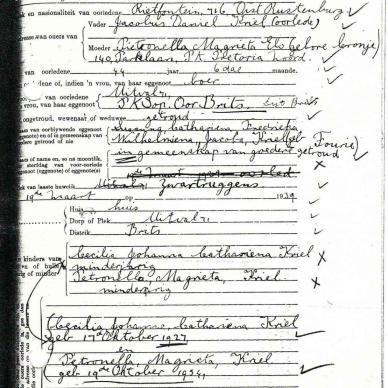 en nasionaliteit van oorledene Rietfontein, 716 Dist Rustenburg
Vader Jacobus Daniel Kriel (oorlede)
adres van ouers van
Moeder Petronella Magrieta Els (gebore Cronje)
140, Parklaan, P.K. Pretoria Noord.
van oorledene 44 jaar 6 dae maande.
of, indien 'n vrou, van haar eggenoot boer
van oorledene Uitval
vrou, van haar eggenoot P.K. Sop. Oor Brits.
ongetroud, wewenaar of weduwee getroud
van oorblywende eggenoot
(eggenote) of gemeenskap van goedere getroud of nie
Susanna Catharina Fredrieka
Wilhelmina Jacoba, Kriel (geb Fourie)
in gemeenskap van goedere getroud
naam of name en, so na moontlik,
sterfdag van voor-oorlede
(eggenoot) of eggenote(s)
oorlede
plek van laaste huwelik Zwartruggens
19de Maart op 1939
Huis huis
Dorp of Plek Uitval
Distrik Brits
kinders van
Cecilia Johanna Cathariena Kriel
minderjarig
Petronella, Magrieta, Kriel
minderjarig
(Cecilia Johanna, Cathariena Kriel
geb 17de Oktober 1927
en
Petronella, Magrieta, Kriel
geb 19de Oktober 1934)